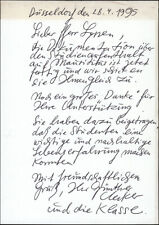 Düsseldorf den 28.4.1995
Lieber Herr
die Dokumentation über
den Studienaufenthalt
auf Mauritius ist jetzt
fertig und wir
sie Ihnen
Noch ein großes Danke für
Ihre Unterstützung
Sie haben dazu beigetragen
daß die Studenten eine
wichtige und nachhaltige
Lebenserfahrung machen
konnten
Mit freundschaftlichen
Gruß, Ihr Günther
Uecker
und die Klasse.